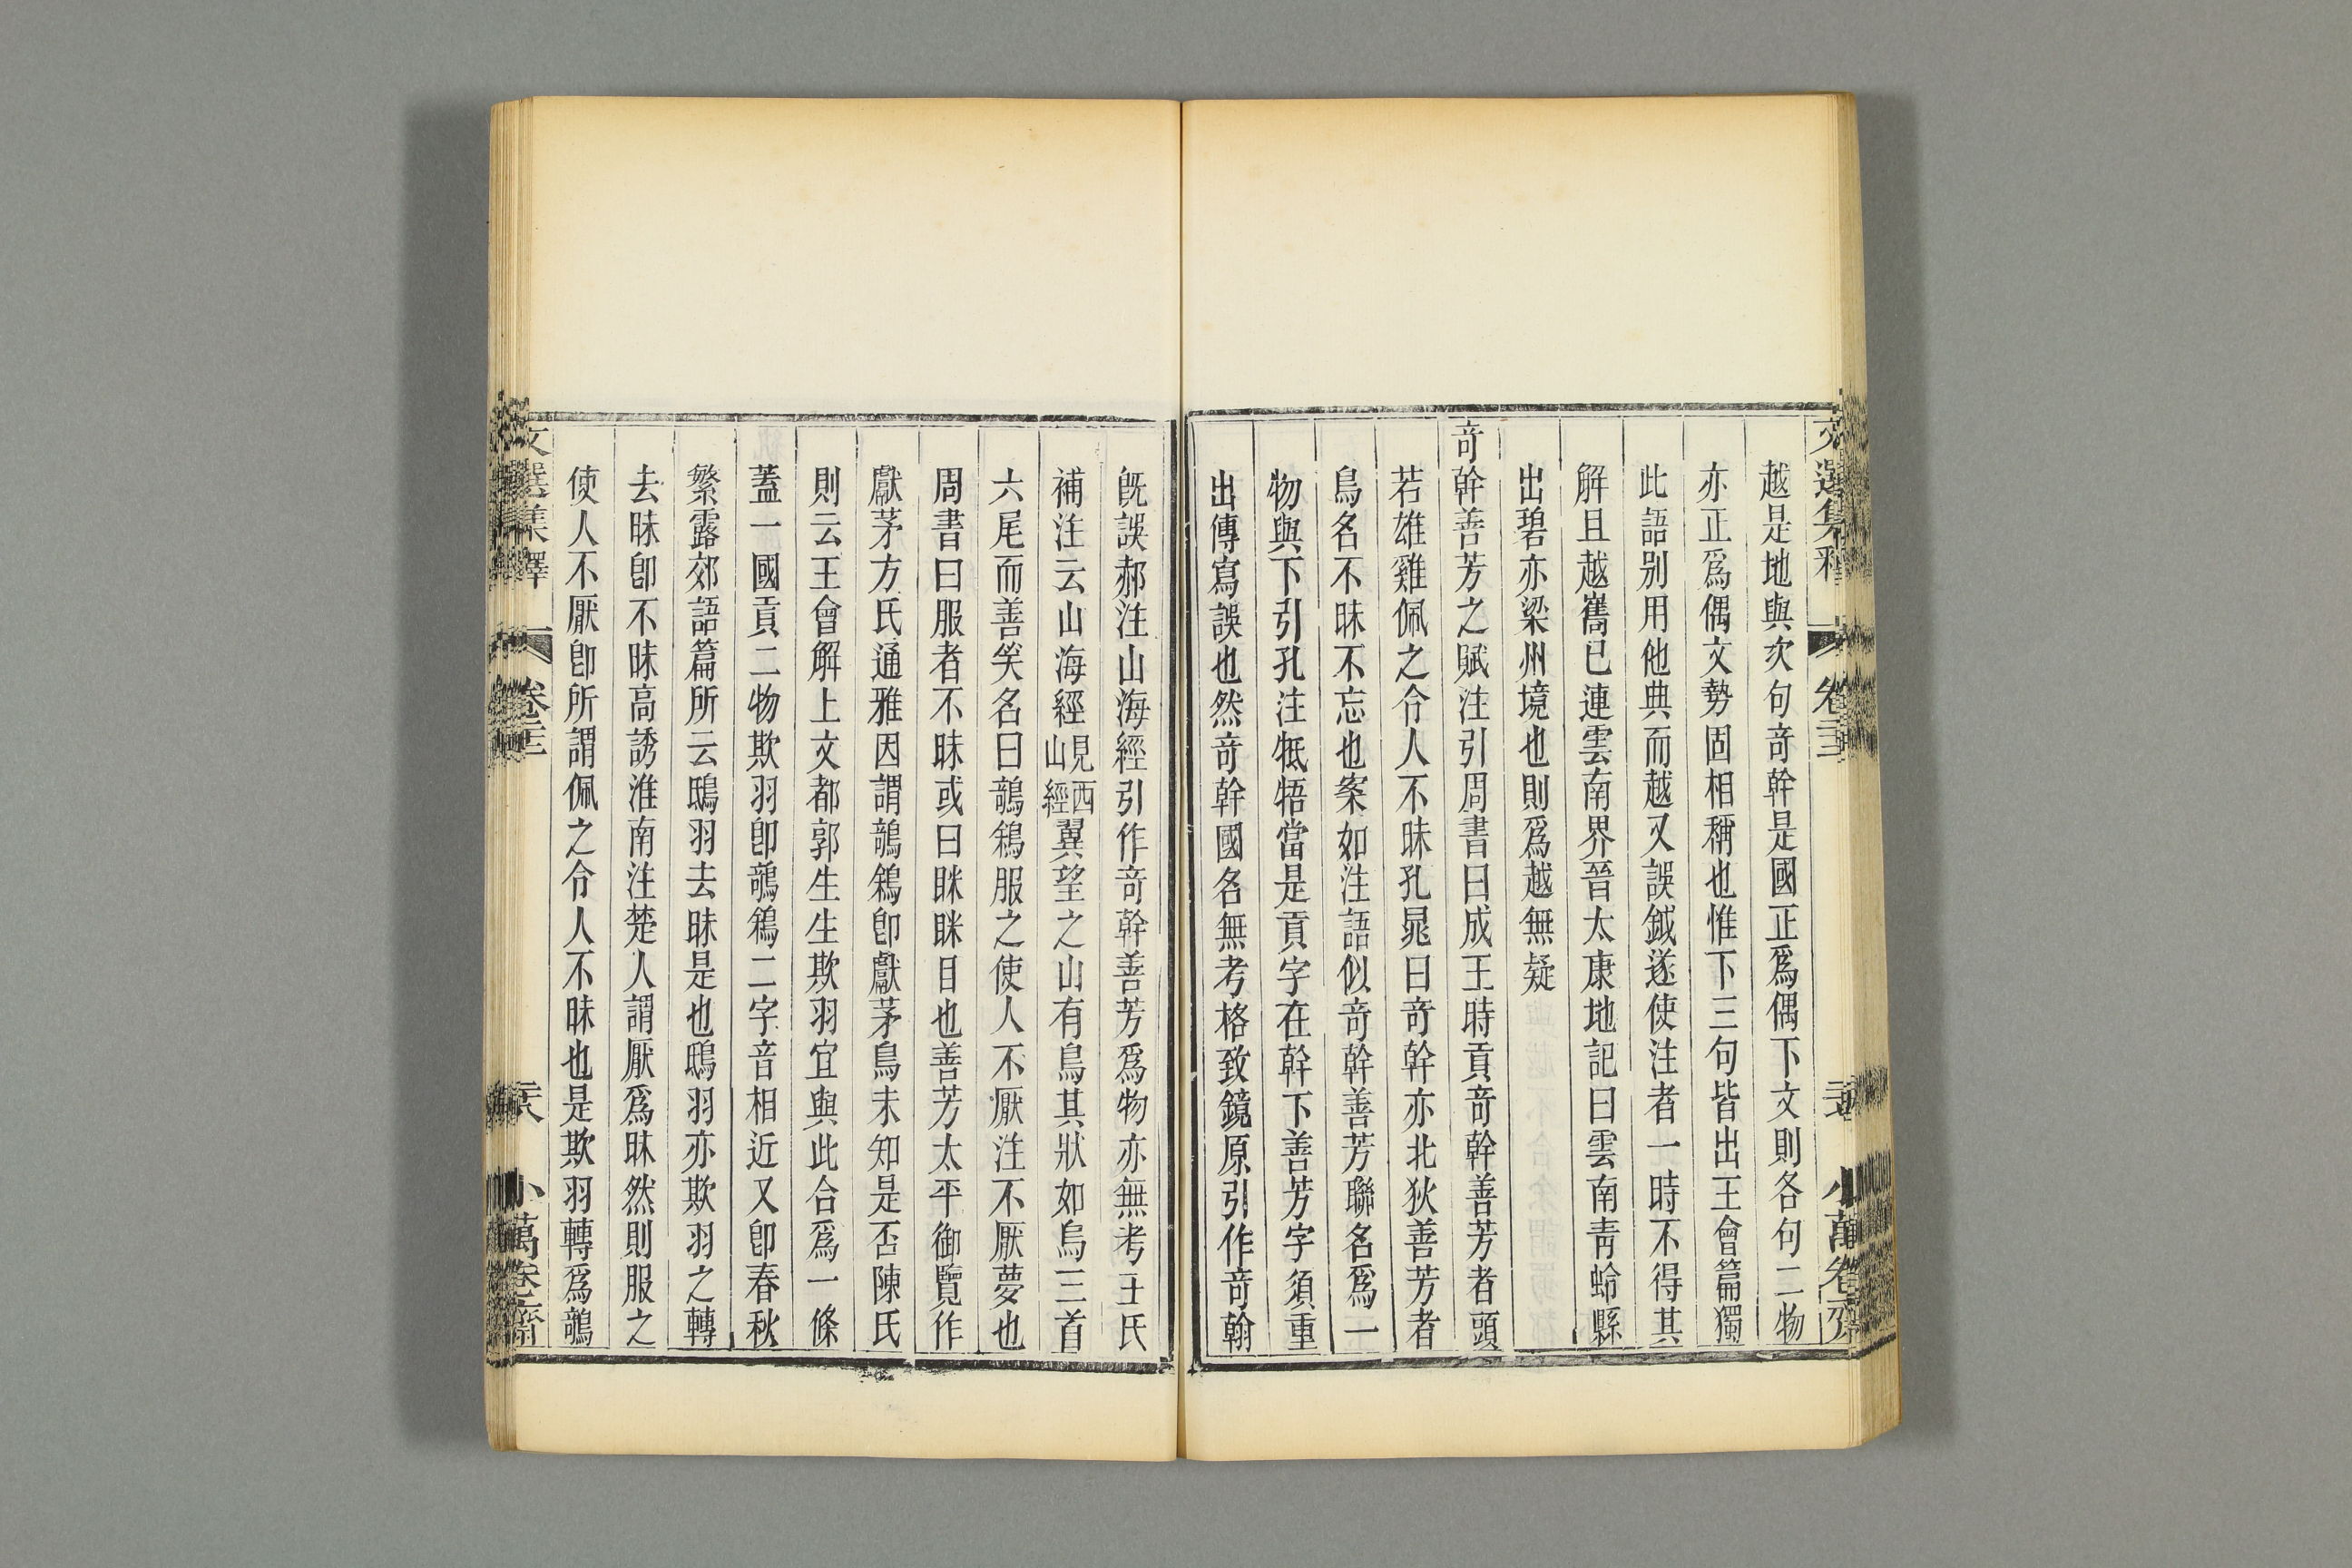 越是地與次句奇幹是國正爲偶下文則各句二物
亦正爲偶文勢固相稱也惟下三句皆出王會篇獨
此語别用他典而越又誤鉞遂使注者一時不得其
解且越巂已連雲南界晉太康地記曰雲南靑蛉縣
出碧亦梁州境也則爲越無疑
奇幹善芳之賦注引周書曰成王時貢奇幹善芳者頭
若雄雞佩之令人不昧孔晁曰奇幹亦北狄善芳者
鳥名不昧不忘也案如注語似奇幹善芳聯名爲一
物與下引孔注牴牾當是貢字在幹下善芳字須重
出傳寫誤也然奇幹國名無考格致鏡原引作奇翰
旣誤郝注山海經引作奇幹善芳爲物亦無考王氏
補注云山海經見西山經翼望之山有鳥其狀如烏三首
六尾而善笑名曰鵸鵌服之使人不厭注不厭夢也
周書曰服者不昧或曰眯眯目也善芳太平御覽作
獻茅方氏通雅因謂鵸鵌卽獻茅鳥未知是否陳氏
則云王會解上文都郭生生欺羽宜與此合爲一條
蓋一國貢二物欺羽卽鵸鵌二字音相近又卽春秋
繁露郊語篇所云鴟羽去昧是也鴟羽亦欺羽之轉
去昧卽不昧高誘淮南注楚人謂厭爲昧然則服之
使人不厭卽所謂佩之令人不昧也是欺羽轉爲鵸
文選集釋 卷二十三 小萬卷齋